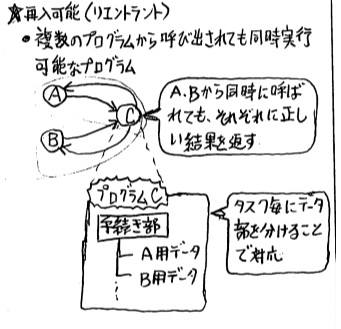 ★再入可能(リエントラント)
●複数のプログラムから呼び出されても同時実行
可能なプログラム
A
B
C
A.Bから同時に呼ば
れても、それぞれに正し
い結果を返す
プログラムC
手続き部
A用データ
B用データ
⋮
タスク毎にデータ
部を分けること
で対応